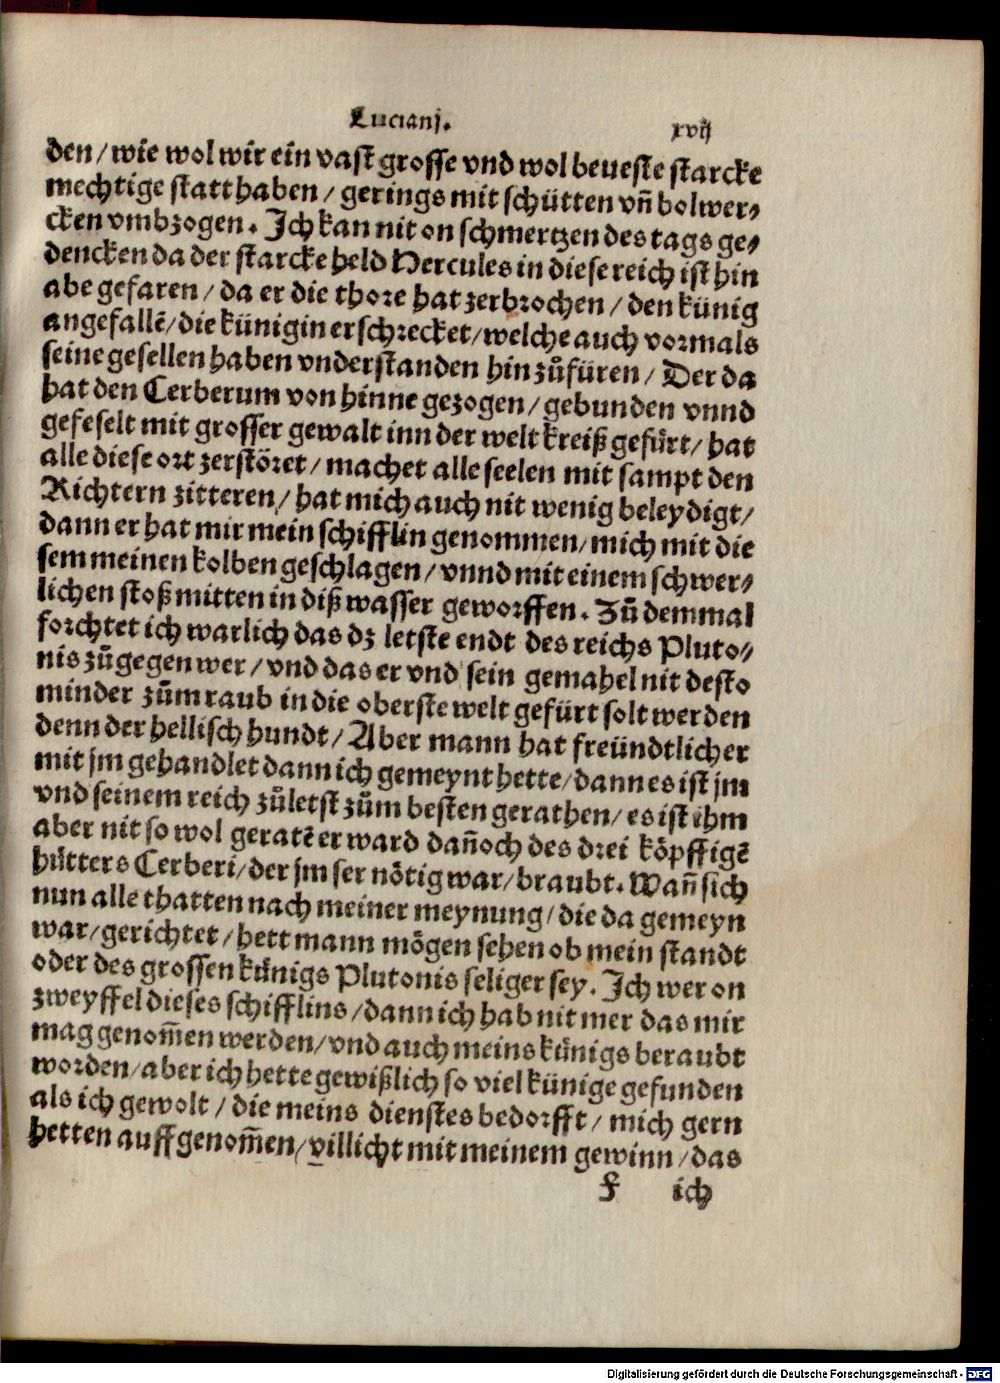 Lucianj.
xvij
den/ wie wol wir ein vast grosse vnd wol beueste starcke
mechtige statt haben/ gerings mit schütten vñ bolwer⸗
cken vmbzogen. Jch kan nit on schmertzen des tags ge⸗
dencken da der starcke held Hercules in diese reich ist hin
abe gefaren/ da er die thore hat zerbrochen/ den künig
angefallē/ die künigin erschrecket/ welche auch vormals
seine gesellen haben vnderstanden hin zůfüren/ Der da
hat den Cerberum von hinne gezogen/ gebunden vnnd
gefeselt mit grosser gewalt inn der welt kreiß gefürt/ hat
alle diese ort zerstöret/ machet alle seelen mit sampt den
Richtern zitteren/ hat mich auch nit wenig beleydigt/
dann er hat mir mein schifflin genommen/ mich mit die
sem meinen kolben geschlagen/ vnnd mit einem schwer⸗
lichen stoß mitten in diß wasser geworffen. Zů dem mal
forchtet ich warlich das dz letste endt des reichs Pluto⸗
nis zůgegen wer/ vnd das er vnd sein gemahel nit desto
minder zům raub in die oberste welt gefürt solt werden
denn der hellisch hundt/ Aber mann hat freündtlicher
mit jm gehandlet dann ich gemeynt hette/ dann es ist jm
vnd seinem reich zůletst zům besten gerathen/ es ist ihm
aber nit so wol geratē er ward dañoch des drei köpffigē
hütters Cerberi/ der jm ser nötig war/ braubt. Wañ sich
nun alle thatten nach meiner meynung/ die da gemeyn
war/ gerichtet/ hett mann mögen sehen ob mein standt
oder des grossen künigs Plutonis seliger sey. Jch wer on
zweyffel dieses schifflins/ dann ich hab nit mer das mir
mag genom̄en werden/ vnd auch meins künigs beraubt
worden/ aber ich hette gewißlich so viel künige gefunden
als ich gewolt/ die meins dienstes bedorfft/ mich gern
hetten auff genom̄en/ villicht mit meinem gewinn/ das
f ich
Digitalisierung gefördert durch die Deutsche Forschungsgemeinschaft - DFG